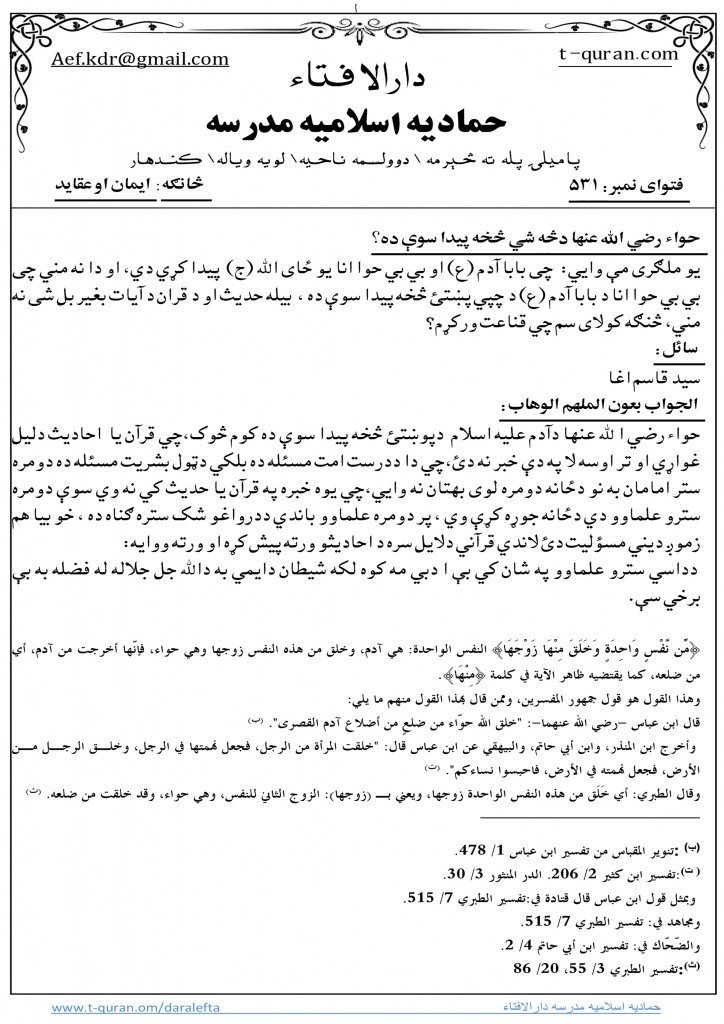 ١
Aef.kdr@gmail.com
t-quran.com
دارالافتاء
حمادیه اسلامیه مدرسه
پامیلي پله ته څېرمه \ دوولسمه ناحیه \ لویه ویاله \ کندهار
فتوای نمبر: ۵۳۱
څانګه: ایمان او عقاید
حواء رضي الله عنها دڅه شي څخه پیدا سوې ده؟
یو ملګری مې وایي: چی بابا آدم (ع) او بي بي حوا انا یو ځای الله (ج) پیدا کړي دي، او دا نه مني چی
بي بي حوا انا د بابا آدم (ع) د چپي پښتۍ څخه پیدا سوې ده ، بیله حدیث او د قران د آیات بغیر بل شی نه
مني، څنګه کولای سم چي قناعت ورکړم؟
سائل:
سید قاسم اغا
الجواب بعون الملهم الوهاب:
حواء رضي ا لله عنها دآدم علیه اسلام دپوښتئ څخه پیدا سوې ده کوم څوک،چي قرآن یا احادیث دلیل
غواړي او تر اوسه لا په دې خبر نه دئ،چي دا ددرست امت مسئله ده بلکي دټول بشریت مسئله ده دومره
ستر امامان به نو دځانه دومره لوی بهتان نه وایي،چي یوه خبره په قرآن یا حدیث کي نه وي سوې دومره
سترو علماوو دي دځانه جوړه کړې وي ، پر دومره علماوو باندي ددرواغو شک ستره ګناه ده ، خو بیا هم
زموږ دیني مسؤلیت دئ لاندي قرآني دلایل سره د احادیثو ورته پیش کړه او ورته ووایه:
دداسي سترو علماوو په شان کي بې ا دبي مه کوه لکه شیطان دایمي به دالله جل جلاله له فضله به بې
برخې سې.
﴿مِّن نَّفْسٍ وَاحِدَةٍ وَخَلَقَ مِنْهَا زَوْجَهَا﴾ النفس الواحدة: هي آدم، وخلق من هذه النفس زوجها وهي حواء، فإنّها أخرجت من آدم، أي
من ضلعه، كما يقتضيه ظاهر الآية في كلمة ﴿مِنْهَا﴾.
وهذا القول هو قول جمهور المفسرين، وممن قال بهذا القول منهم ما يلي:
قال ابن عباس –رضي الله عنهما-: "خلق الله حوّاء من ضلعٍ من أضلاع آدم القصرى". (ب)
وأخرج ابن المنذر، وابن أبي حاتم، والبيهقي عن ابن عباس قال: "خلقت المرأة من الرجل، فجعل نهمتها في الرجل، وخلق الرجل من
الأرض، فجعل نهمته في الأرض، فاحبسوا نساءكم". (ت)
وقال الطبري: أي خَلَق من هذه النفس الواحدة زوجها، ويعني بـ (زوجها): الزوج الثانيْ للنفس، وهي حواء، وقد خلقت من ضلعه. (ث)
(ب) :تنوير المقباس من تفسير ابن عباس 1/ 478.
(ت):تفسير ابن كثير 2/ 206. الدر المنثور 3/ 30.
وبمثل قول ابن عباس قال قتادة في:تفسير الطبري 7/ 515.
ومجاهد في: تفسير الطبري 7/ 515.
والضّحّاك في: تفسير ابن أبي حاتم 4/ 2.
(ث):تفسير الطبري 3/ 55، 20/ 86
حمادیه اسلامیه مدرسه دارالافتاء
www.t-quran.om/daralefta